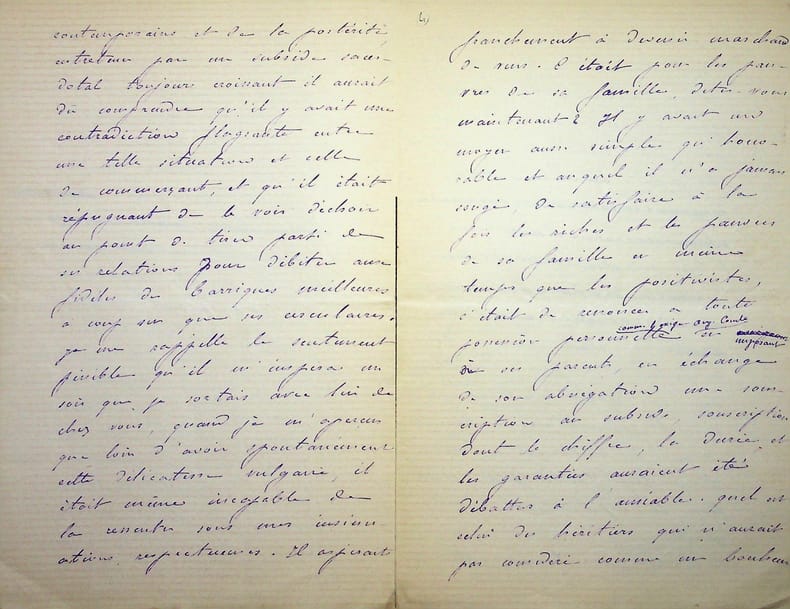 4)
contemporains et de la postérité,
entretenu par un subside sacer-
dotal toujours croissant il aurait
dû comprendre qu'il y avait une
contradiction flagrante entre
une telle situation et celle
de commerçant, et qu'il était
répugnant de le voir déchoir
au point de tirer parti de
ses relations pour débiter aux
fidèles des barriques meilleures
à coup sûr que ses circulaires.
Je me rappelle le sentiment
pénible qu'il m'inspira un
soir que je sortais avec lui de
chez vous, quand je m'aperçus
que loin d'avoir spontanément
cette délicatesse vulgaire, il
était même incapable de
la ressentir sous mes insinu-
ations respectueuses. Il aspirait
franchement à devenir marchand
de vins. C'était pour les pau-
vres de sa famille, dites-vous
maintenant ? Il y avait un
moyen aussi simple qu'hono-
rable et auquel il n'a jamais
songé, de satisfaire à la
fois les riches et les pauvres
de sa famille en même
temps que les positivistes,
c'était de renoncer à toute
comme l'exige Aug. Comte
possession personnelle en imposant
à ses parents, en échange
de son abnégation une sous-
cription au subside, souscription
dont le chiffre, la durée et
les garanties auraient été
débattus à l'amiable. Quel est
celui des héritiers qui n'aurait
pas considéré comme un bonheur